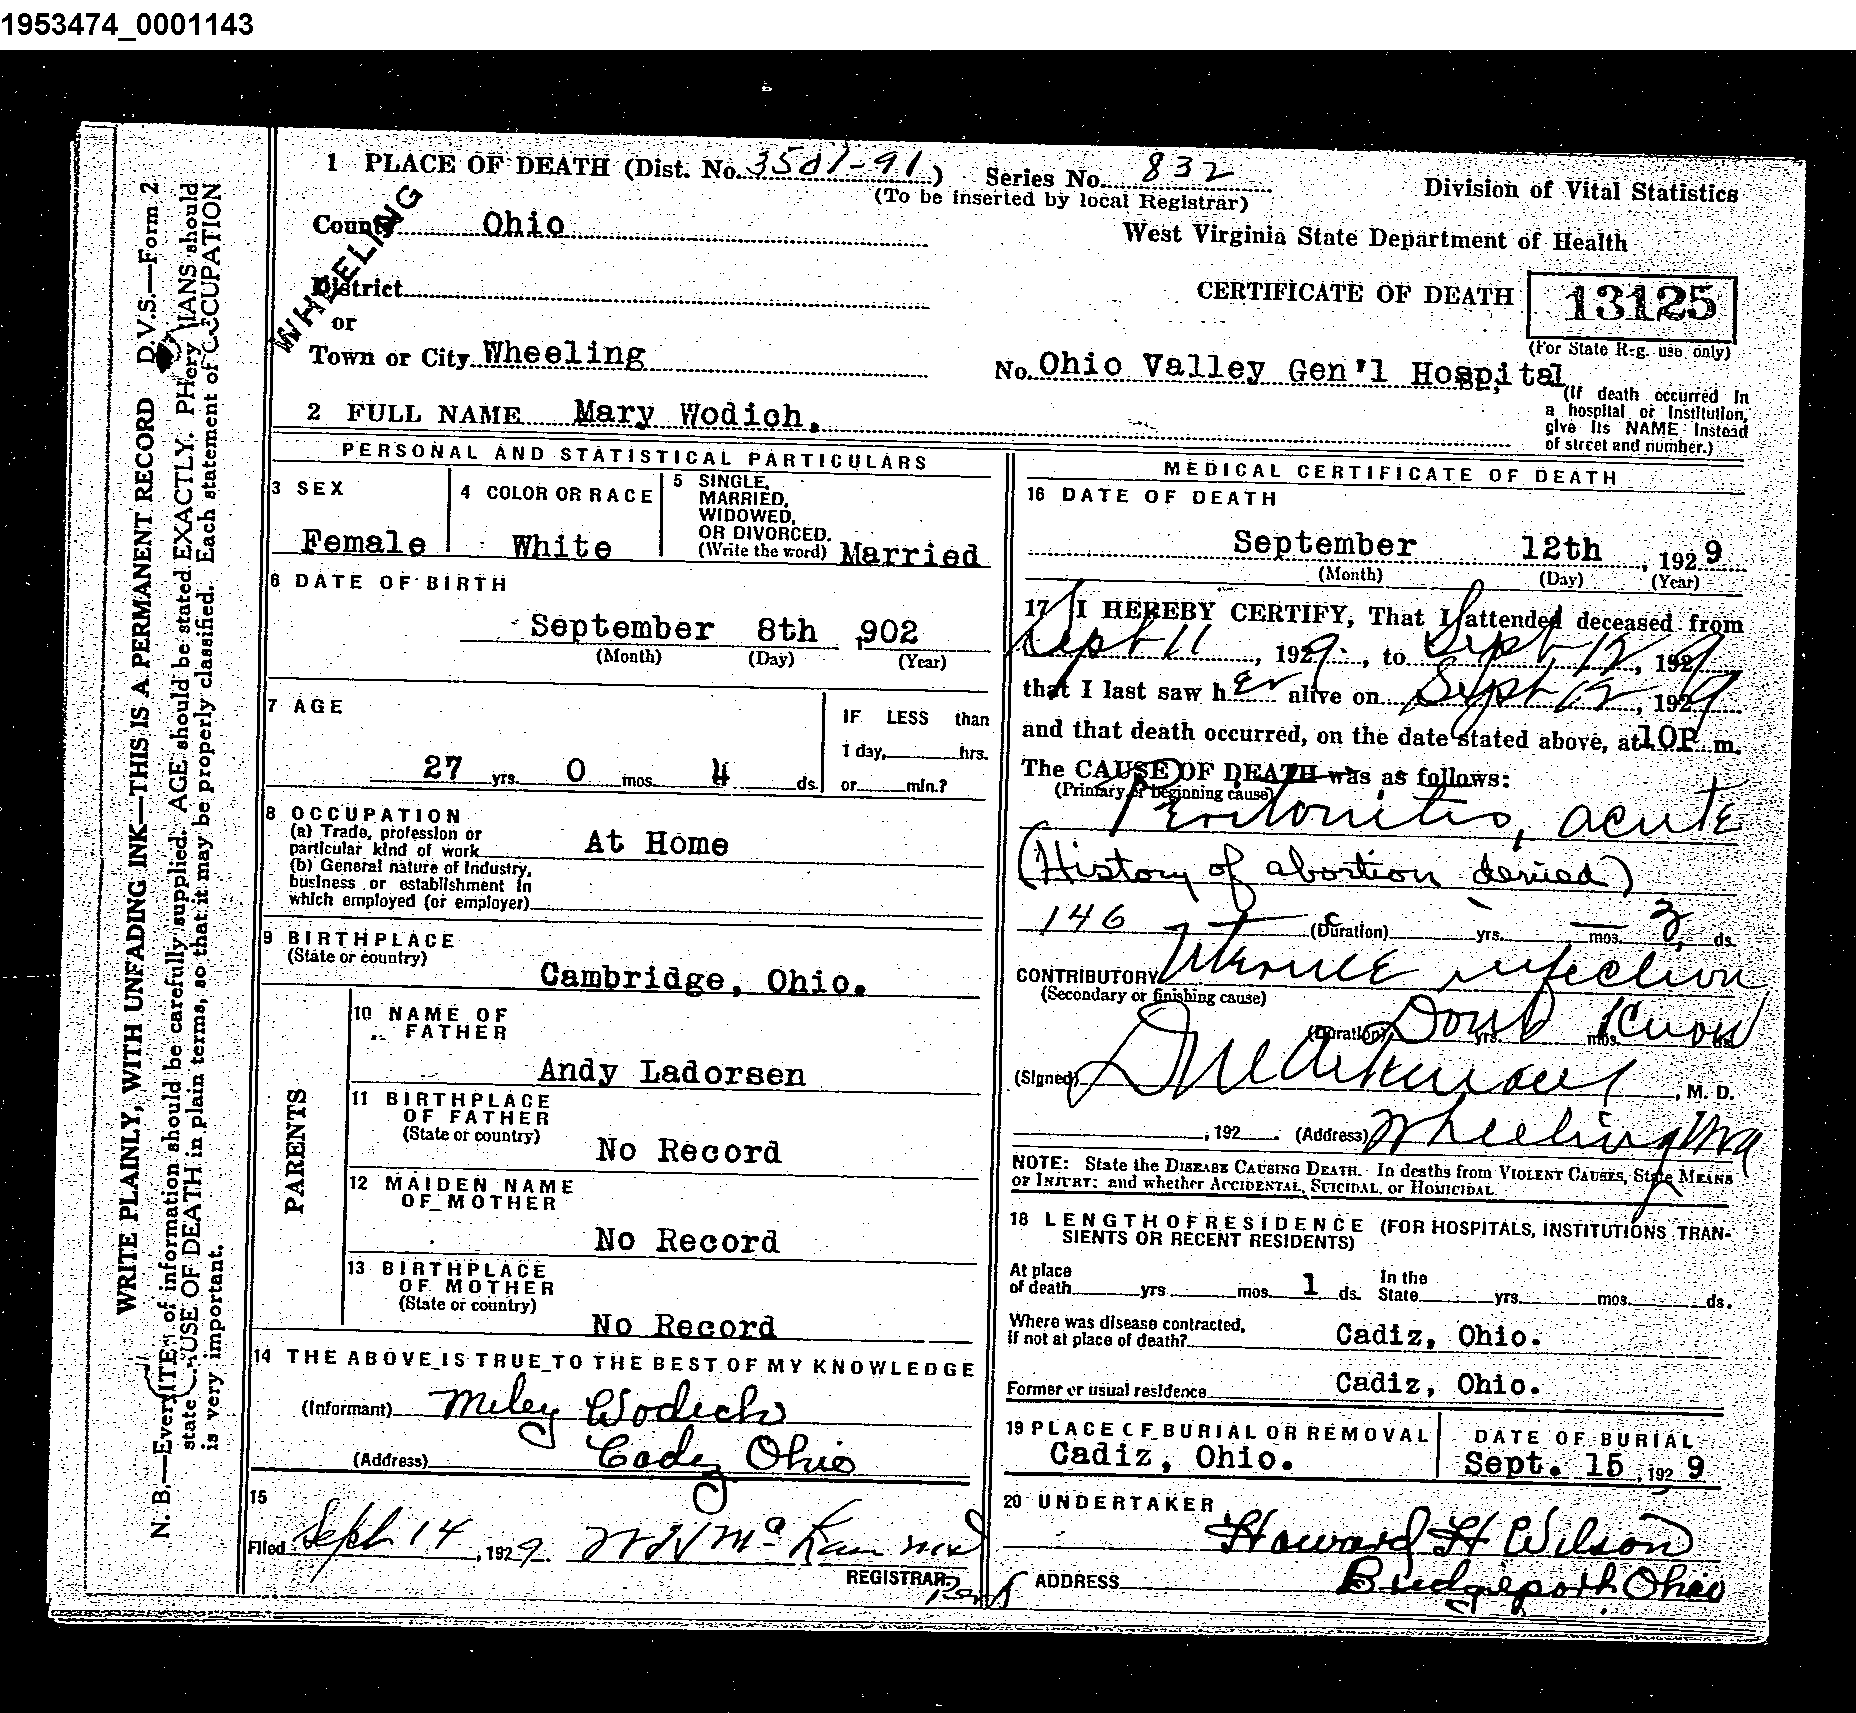 1953474_0001143
1 PLACE OF DEATH (Dist. No. 3501-91) Series No. 832
(To be inserted by local Registrar)
Division of Vital Statistics
County Ohio
West Virginia State Department of Health
WHEELING
District
CERTIFICATE OF DEATH 13125
(For State Reg. use only)
or
Town or City Wheeling
No. Ohio Valley Gen'l Hospital
(If death occurred in
a hospital or institution,
give its NAME instead
of street and number.)
2 FULL NAME Mary Wodich.
PERSONAL AND STATISTICAL PARTICULARS
3 SEX
Female
4 COLOR OR RACE
White
5 SINGLE,
MARRIED,
WIDOWED,
OR DIVORCED.
(Write the word) Married
6 DATE OF BIRTH
September 8th ,902
(Month) (Day) (Year)
7 AGE
27 yrs. 0 mos. 4 ds.
IF LESS than
1 day, hrs.
or min.?
8 OCCUPATION
(a) Trade, profession or
particular kind of work At Home
(b) General nature of Industry,
business or establishment in
which employed (or employer)
9 BIRTHPLACE
(State or country)
Cambridge, Ohio.
PARENTS
10 NAME OF
FATHER
Andy Ladorsen
11 BIRTHPLACE
OF FATHER
(State or country)
No Record
12 MAIDEN NAME
OF MOTHER
No Record
13 BIRTHPLACE
OF MOTHER
(State or country)
No Record
14 THE ABOVE IS TRUE TO THE BEST OF MY KNOWLEDGE
(Informant) Miley Wodich
(Address) Cadiz Ohio
15
Filed Sept 14, 1929.
REGISTRAR.
MEDICAL CERTIFICATE OF DEATH
16 DATE OF DEATH
September 12th , 1929
(Month) (Day) (Year)
17 I HEREBY CERTIFY, That I attended deceased from
Sept 11, 1929, to Sept 12, 1929
that I last saw her alive on Sept 12, 1929
and that death occurred, on the date stated above, at 10P m.
The CAUSE OF DEATH was as follows:
(Primary or beginning cause)
Peritonitis, acute
(History of abortion denied)
146 (Duration) yrs. mos. 3 ds.
CONTRIBUTORY Uterine infection
(Secondary or finishing cause)
(Duration) Don't Know yrs. mos. ds.
(Signed) , M. D.
, 192 (Address) Wheeling W Va
NOTE: State the DISEASE CAUSING DEATH. In deaths from VIOLENT CAUSES, State MEANS
OF INJURY; and whether ACCIDENTAL, SUICIDAL, or HOMICIDAL.
18 LENGTH OF RESIDENCE (FOR HOSPITALS, INSTITUTIONS, TRAN-
SIENTS OR RECENT RESIDENTS)
At place
of death yrs. mos. 1 ds.
In the
State yrs. mos. ds.
Where was disease contracted,
if not at place of death? Cadiz, Ohio.
Former or usual residence Cadiz, Ohio.
19 PLACE OF BURIAL OR REMOVAL
Cadiz, Ohio.
DATE OF BURIAL
Sept. 15, 1929
20 UNDERTAKER
Howard H Wilson
ADDRESS Bridgeport Ohio
WRITE PLAINLY, WITH UNFADING INK—THIS IS A PERMANENT RECORD D.V.S.—Form 2
N. B.—Every ITEM of information should be carefully supplied. AGE should be stated EXACTLY. PHYSICIANS should
state CAUSE OF DEATH in plain terms, so that it may be properly classified. Each statement of OCCUPATION
is very important.